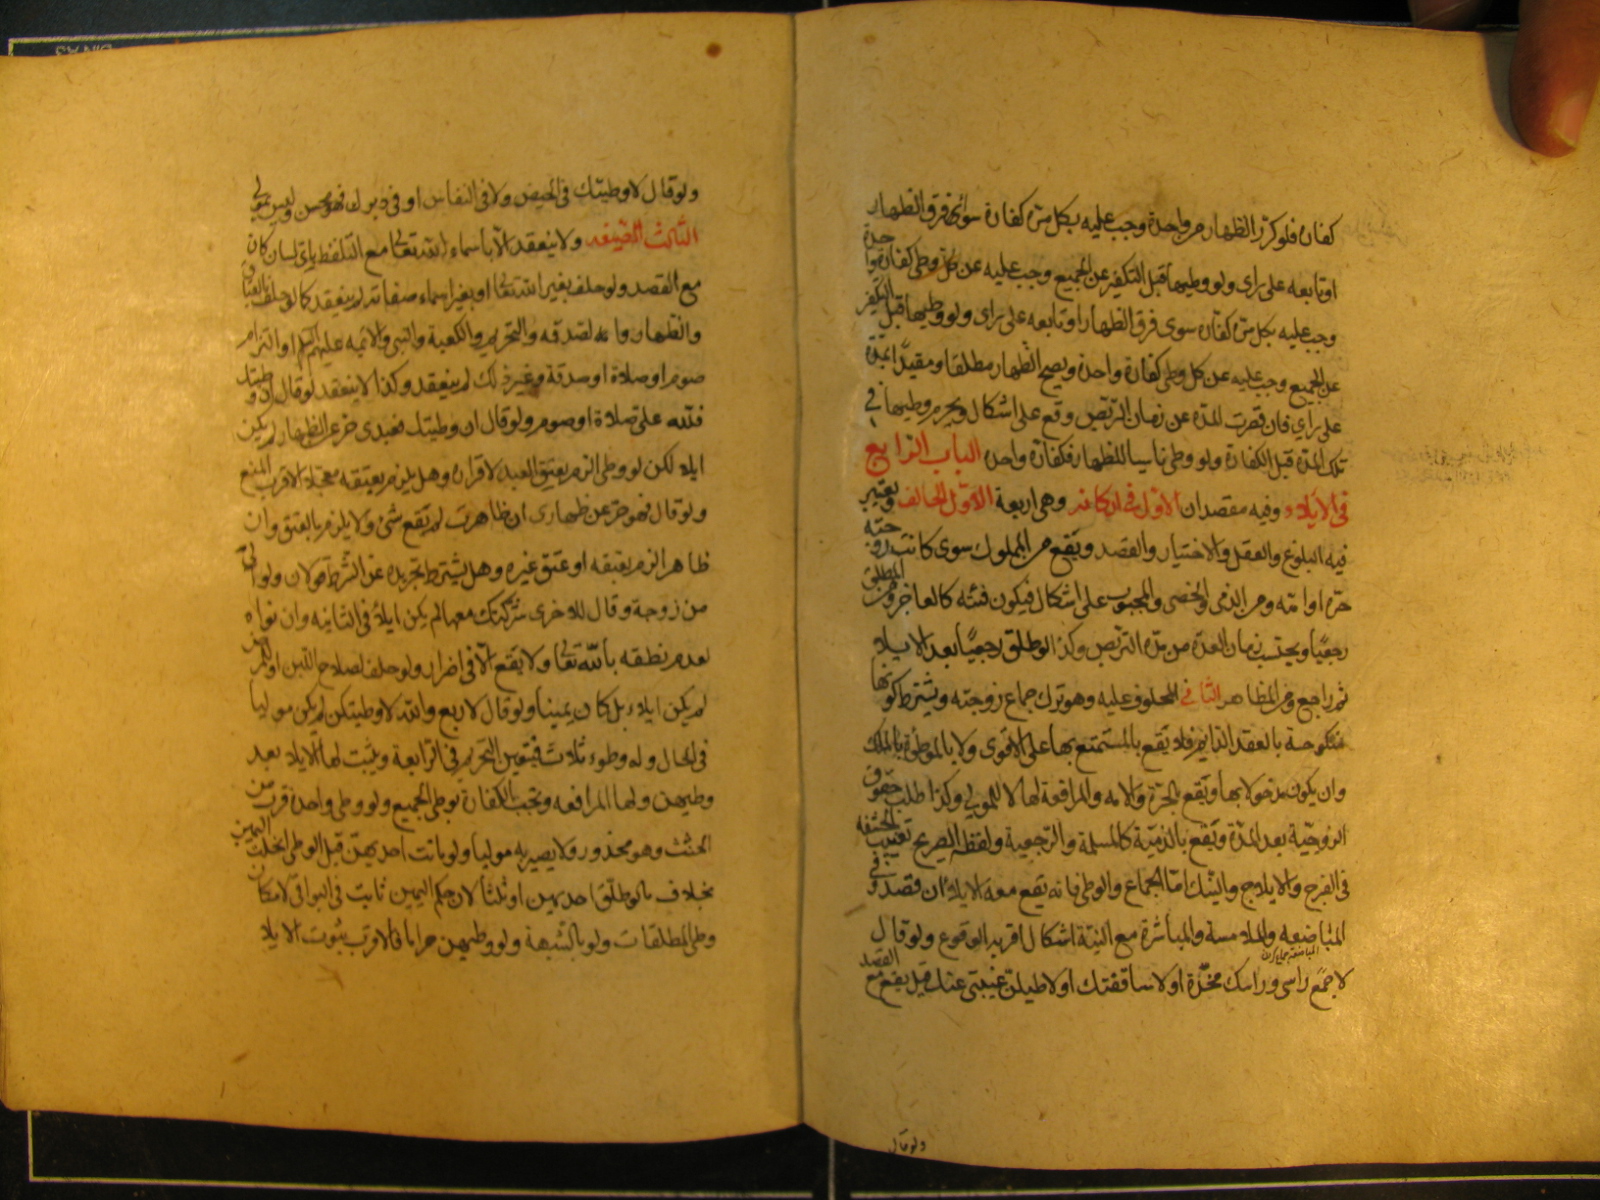 كفارة فلو كرر الظهار من واحدة وجب عليه بكل مرة كفارة سواء فرق الظهار
او تابعه على راى ولو وطيها قبل التكفير عن الجميع وجب عليه عن كل وطى كفارة واحدة
وجب عليه بكل مرة كفارة سوى فرق الظهار او تابعه على راى ولو وطيها قبل التكفير
عن الجميع وجب عليه عن كل وطى كفارة واحدة ويصح الظهار مطلقا ومقيدا بمدة
على راى فان قصرت المدة عن زمان التربص وقع على اشكال ويحرم وطيها فى
تلك المدة قبل الكفارة ولو وطى ناسيا للظهار فكفارة واحدة الباب الرابع
فى الايلاء وفيه مقصدان الاول فى اركانه وهى اربعة الاول الحالف ويعتبر
فيه البلوغ والعقل والاختيار والقصد ويقع من المملوك سوى كانت زوجته
حرة او امة ومن الذمى والخصى والمجبوب على اشكال فيكون فئته كالعاجز ومن المطلق
رجعيا ويحتسب زمان العدة من مدة التربص وكذا لو طلق رجعيا بعد الايلاء
ثم راجع ومن المظاهر الثانى المحلوف عليه وهو ترك جماع زوجته ويشترط كونها
منكوحة بالعقد الدايم فلا يقع بالمستمتع بها على الاقوى ولا بالموطوءة بالملك
وان يكون مدخولا بها ويقع بالحرة والامة والمرافعة لها لا للمولى وكذا طلب حقوق
الزوجية بعد المدة ويقع بالذمية كالمسلمة والرجعية ولفظه الصريح تغييب الحشفة
فى الفرج والايلاج والنيك اما الجماع والوطى فانه يقع معه الايلاء ان قصد وفى
المباضعة والملامسة والمباشرة مع النية اشكال اقربه الوقوع ولو قال
لا جمع راسى وراسك مخدة او لا ساقفتك او لا طيلن غيبتى عنك قيل يقع مع القصد
ولو قال
ولو قال لا وطيتك فى الحيض ولا فى النفاس او فى دبرك فهو محسن وليس بمولى
الثالث الصيغة ولا ينعقد الا باسماء الله تعالى مع التلفظ باى لسان كان
مع القصد ولو حلف بغير الله تعالى او بغير اسماء صفاته لم ينعقد كما لو حلف بالعتاق
والظهار والصدقة والتحريم والكعبة والنبى والائمة عليهم السلم او التزام
صوم او صلاة او صدقة وغير ذلك لم ينعقد وكذا لا ينعقد لو قال ان وطيتك
فلله على صلاة او صوم ولو قال ان وطيتك فعبدى حر عن الظهار لم يكن
ايلاء لكن لو وطى الزم بعتق العبد لاقراره وهل يلزم بعتقه معجلا الاقرب المنع
ولو قال فهو حر عن ظهارى ان ظاهرت لم يقع شئ ولا يلزم بالعتق وان
ظاهر الزم بعتقه او عتق غيره وهل يشترط تجريده عن الشرط قولان ولو الى
من زوجة وقال للاخرى شركتك معها لم يكن ايلاء فى الثانية وان نواه
لعدم نطقه بالله تعالى ولا يقع الا فى اضرار ولو حلف لصلاح اللبن او لمرض
لم يكن ايلاء بل كان يمينا ولو قال لاربع والله لا وطيتكن لم يكن موليا
فى الحال وله وطوء ثلاث فيتعين التحريم فى الرابعة ويثبت لها الايلاء بعد
وطيهن ولها المرافعة وتجب الكفارة بوطى الجميع ولو وطى واحدة قرب من
الحنث وهو محذور ولا يصير به موليا ولو ماتت احديهن قبل الوطى انحلت اليمين
بخلاف ما لو طلق احديهن او ثلثا لان حكم اليمين ثابت فى البواقى لامكان
وطى المطلقات ولو بالشبهة ولو وطيهن حراما فالاقرب ثبوت الايلاء